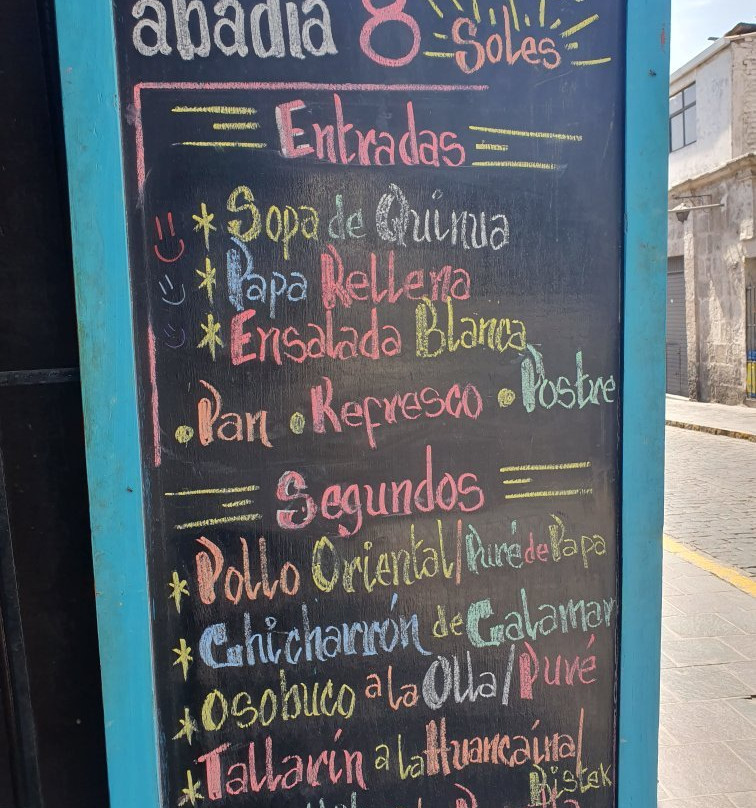 abadía 8 Soles
Entradas
* Sopa de Quinua
* Papa Rellena
* Ensalada Blanca
. Pan . Refresco . Postre
Segundos
* Pollo Oriental/Puré de Papa
* Chicharrón de Calamar
* Osobuco a la Olla/Puré
* Tallarín a la Huancaína/
Bistek